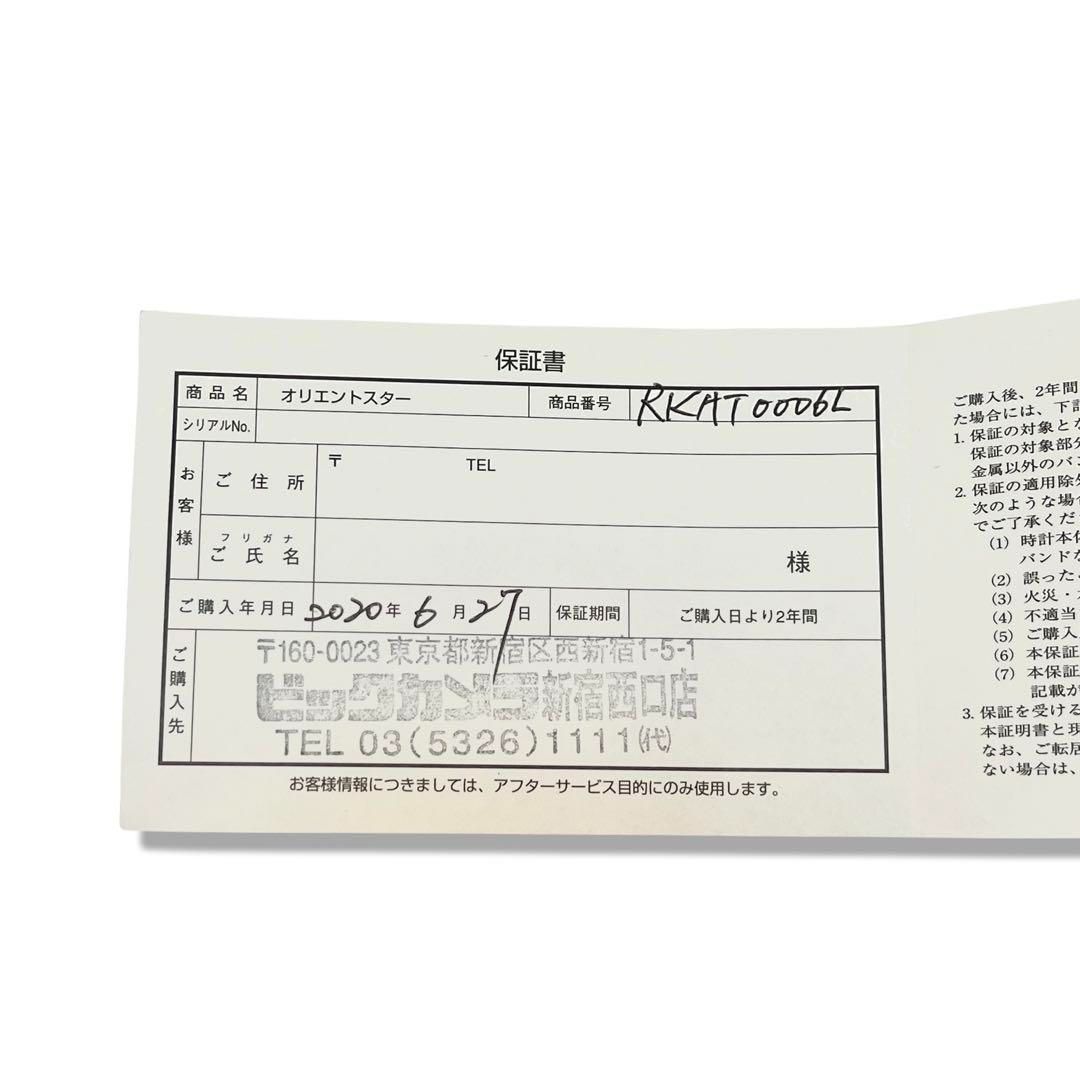 保証書
商品名 オリエントスター 商品番号 RKAT0006L
シリアルNo.
お客様 ご住所 〒 TEL
フリガナ
ご氏名 様
ご購入年月日 2020年 6月27日 保証期間 ご購入日より2年間
ご購入先 〒160-0023 東京都新宿区西新宿1-5-1
ビックカメラ新宿西口店
TEL 03(5326)1111(代)
お客様情報につきましては、アフターサービス目的にのみ使用します。
ご購入後、2年間
た場合には、下記
1. 保証の対象とな
保証の対象部分
金属以外のバン
2. 保証の適用除外
次のような場合
でご了承くだ
(1) 時計本体
バンドな
(2) 誤った
(3) 火災・
(4) 不適当
(5) ご購入
(6) 本保証
(7) 本保証
記載が
3. 保証を受ける
本証明書と現
なお、ご転居
ない場合は、